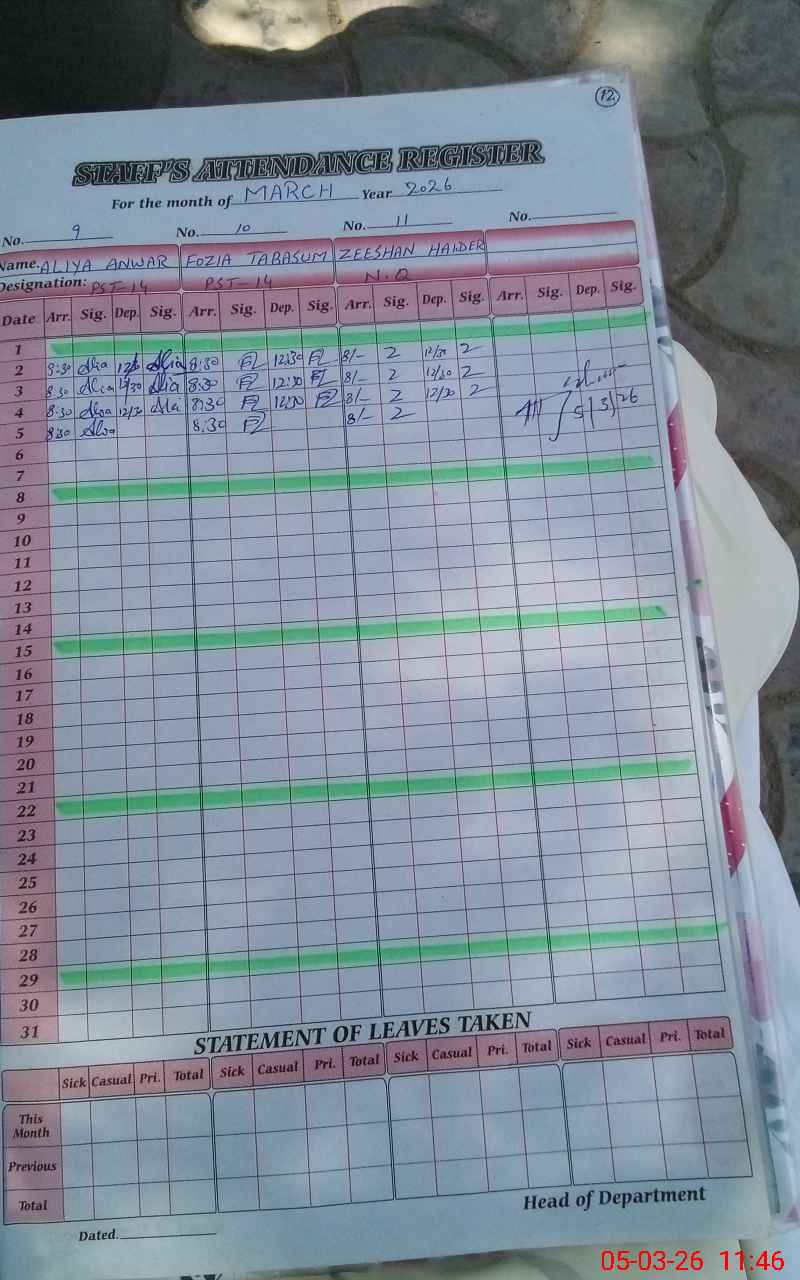 12
STAFF'S ATTENDANCE REGISTER
For the month of MARCH Year 2026
No. 9 No. 10 No. 11 No.
Name. ALIYA ANWAR FOZIA TABASUM ZEESHAN HAIDER
Designation: PST-14 PST-14 N.Q
Date Arr. Sig. Dep. Sig. Arr. Sig. Dep. Sig. Arr. Sig. Dep. Sig. Arr. Sig. Dep. Sig.
1
2 8:30 Alia Alia 8:30 12:30 8/- 12/30
3 8:30 Alia 12/30 Alia 8:30 12:30 8/- 12/30
4 8:30 12/30 8:30 12:30 8/- 12/30
5 8:30 8:30 8/- 5/3/26
6
7
8
9
10
11
12
13
14
15
16
17
18
19
20
21
22
23
24
25
26
27
28
29
30
31
STATEMENT OF LEAVES TAKEN
Sick Casual Pri. Total Sick Casual Pri. Total Sick Casual Pri. Total Sick Casual Pri. Total
This
Month
Previous
Total
Head of Department
Dated.
05-03-26 11:46